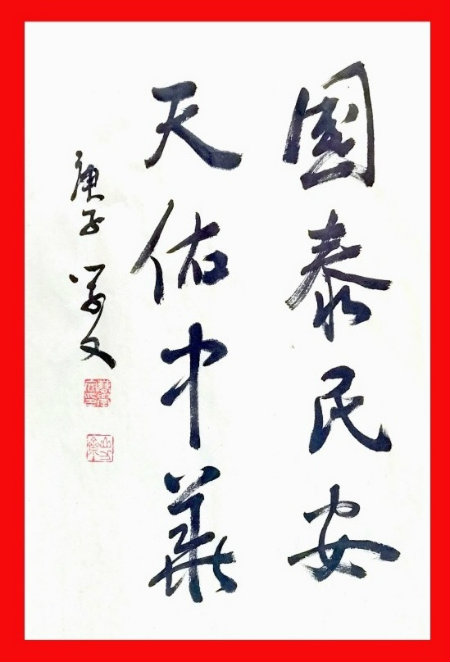 國泰民安
天佑中華
庚子